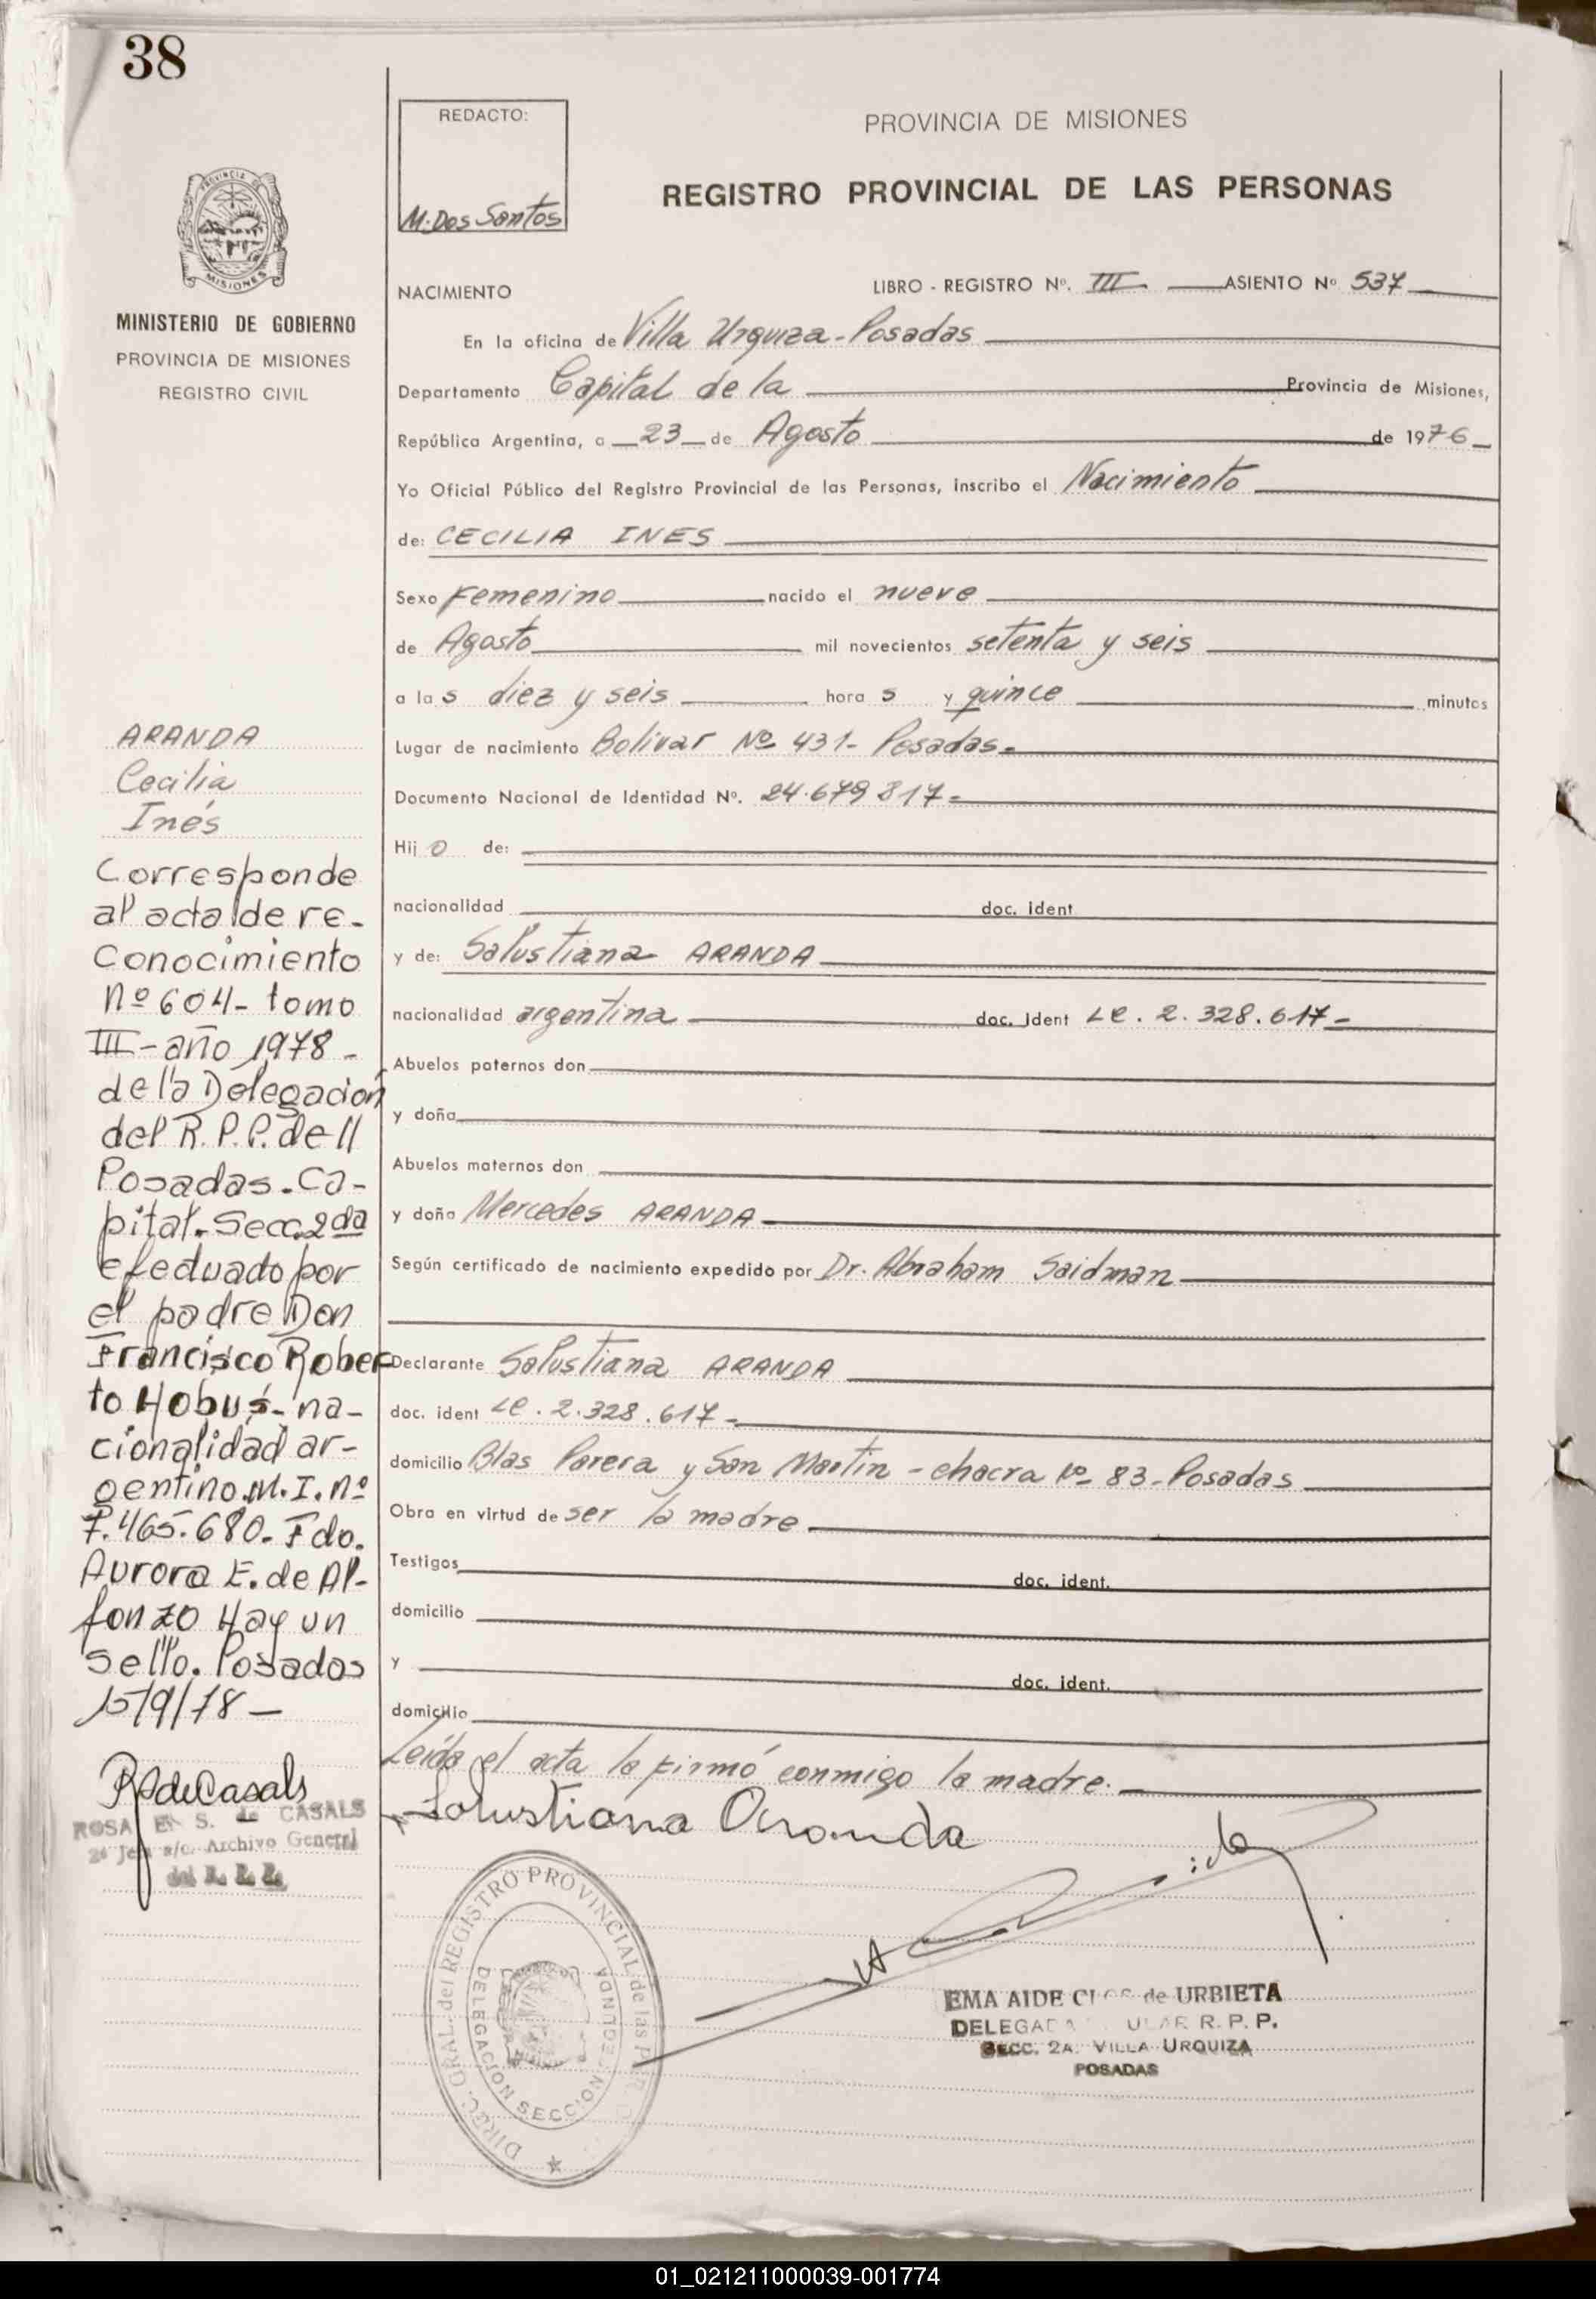 38
PROVINCIA DE
MISIONES
MINISTERIO DE GOBIERNO
PROVINCIA DE MISIONES
REGISTRO CIVIL
ARANDA
Cecilia
Inés
Corresponde
al acta de re-
conocimiento
nº 604- tomo
III - año 1978 -
de la Delegación
del R.P.P. de II
Posadas. Ca-
pital. Secc. 2da
efectuado por
el padre Don
Francisco Rober
to Hobus- na-
cionalidad ar-
gentino. M.I. nº
7.465.680. Fdo.
Aurora E. de Al-
fonzo Hay un
sello. Posadas
15/9/78 -
RAdeCasals
ROSA E. S. de CASALS
2º Jefe a/c. Archivo General
del R. P. P.
REDACTO:
M. Dos Santos
PROVINCIA DE MISIONES
REGISTRO PROVINCIAL DE LAS PERSONAS
NACIMIENTO LIBRO - REGISTRO Nº. III ASIENTO Nº 537
En la oficina de Villa Urquiza - Posadas
Departamento Capital de la Provincia de Misiones,
República Argentina, a 23 de Agosto de 1976
Yo Oficial Público del Registro Provincial de las Personas, inscribo el Nacimiento
de: CECILIA INES
Sexo Femenino nacido el nueve
de Agosto mil novecientos setenta y seis
a las diez y seis horas y quince minutos
Lugar de nacimiento Bolivar Nº 431- Posadas-
Documento Nacional de Identidad Nº. 24.679.817-
Hijo de:
nacionalidad doc. ident
y de: Salustiana ARANDA
nacionalidad argentina doc. Ident LC. 2.328.617-
Abuelos paternos don
y doña
Abuelos maternos don
y doña Mercedes ARANDA
Según certificado de nacimiento expedido por Dr. Abraham Saidman
Declarante Salustiana ARANDA
doc. ident LC. 2.328.617-
domicilio Blas Parera y San Martin - chacra Nº 83- Posadas
Obra en virtud de ser la madre
Testigos doc. ident.
domicilio
y doc. ident.
domicilio
Leída el acta la firmó conmigo la madre.
Salustiana Aranda
DIREC. GRAL. del REGISTRO PROVINCIAL de las
DELEGACION SECCION SEGUNDA
EMA AIDE de URBIETA
DELEGADA R. P. P.
SECC. 2A. VILLA URQUIZA
POSADAS
01_021211000039-001774